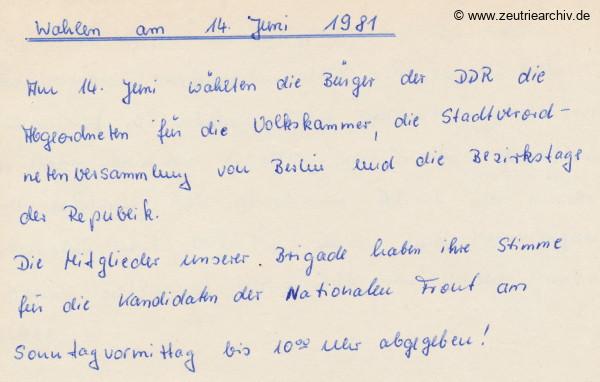 © www.zeutriearchiv.de
Wahlen am 14. Juni 1981
Am 14. Juni wählten die Bürger der DDR die
Abgeordneten für die Volkskammer, die Stadtverord-
netenversammlung von Berlin und die Bezirkstage
der Republik.
Die Mitglieder unserer Brigade haben ihre Stimme
für die Kandidaten der Nationalen Front am
Sonntagvormittag bis 10⁰⁰ Uhr abgegeben!